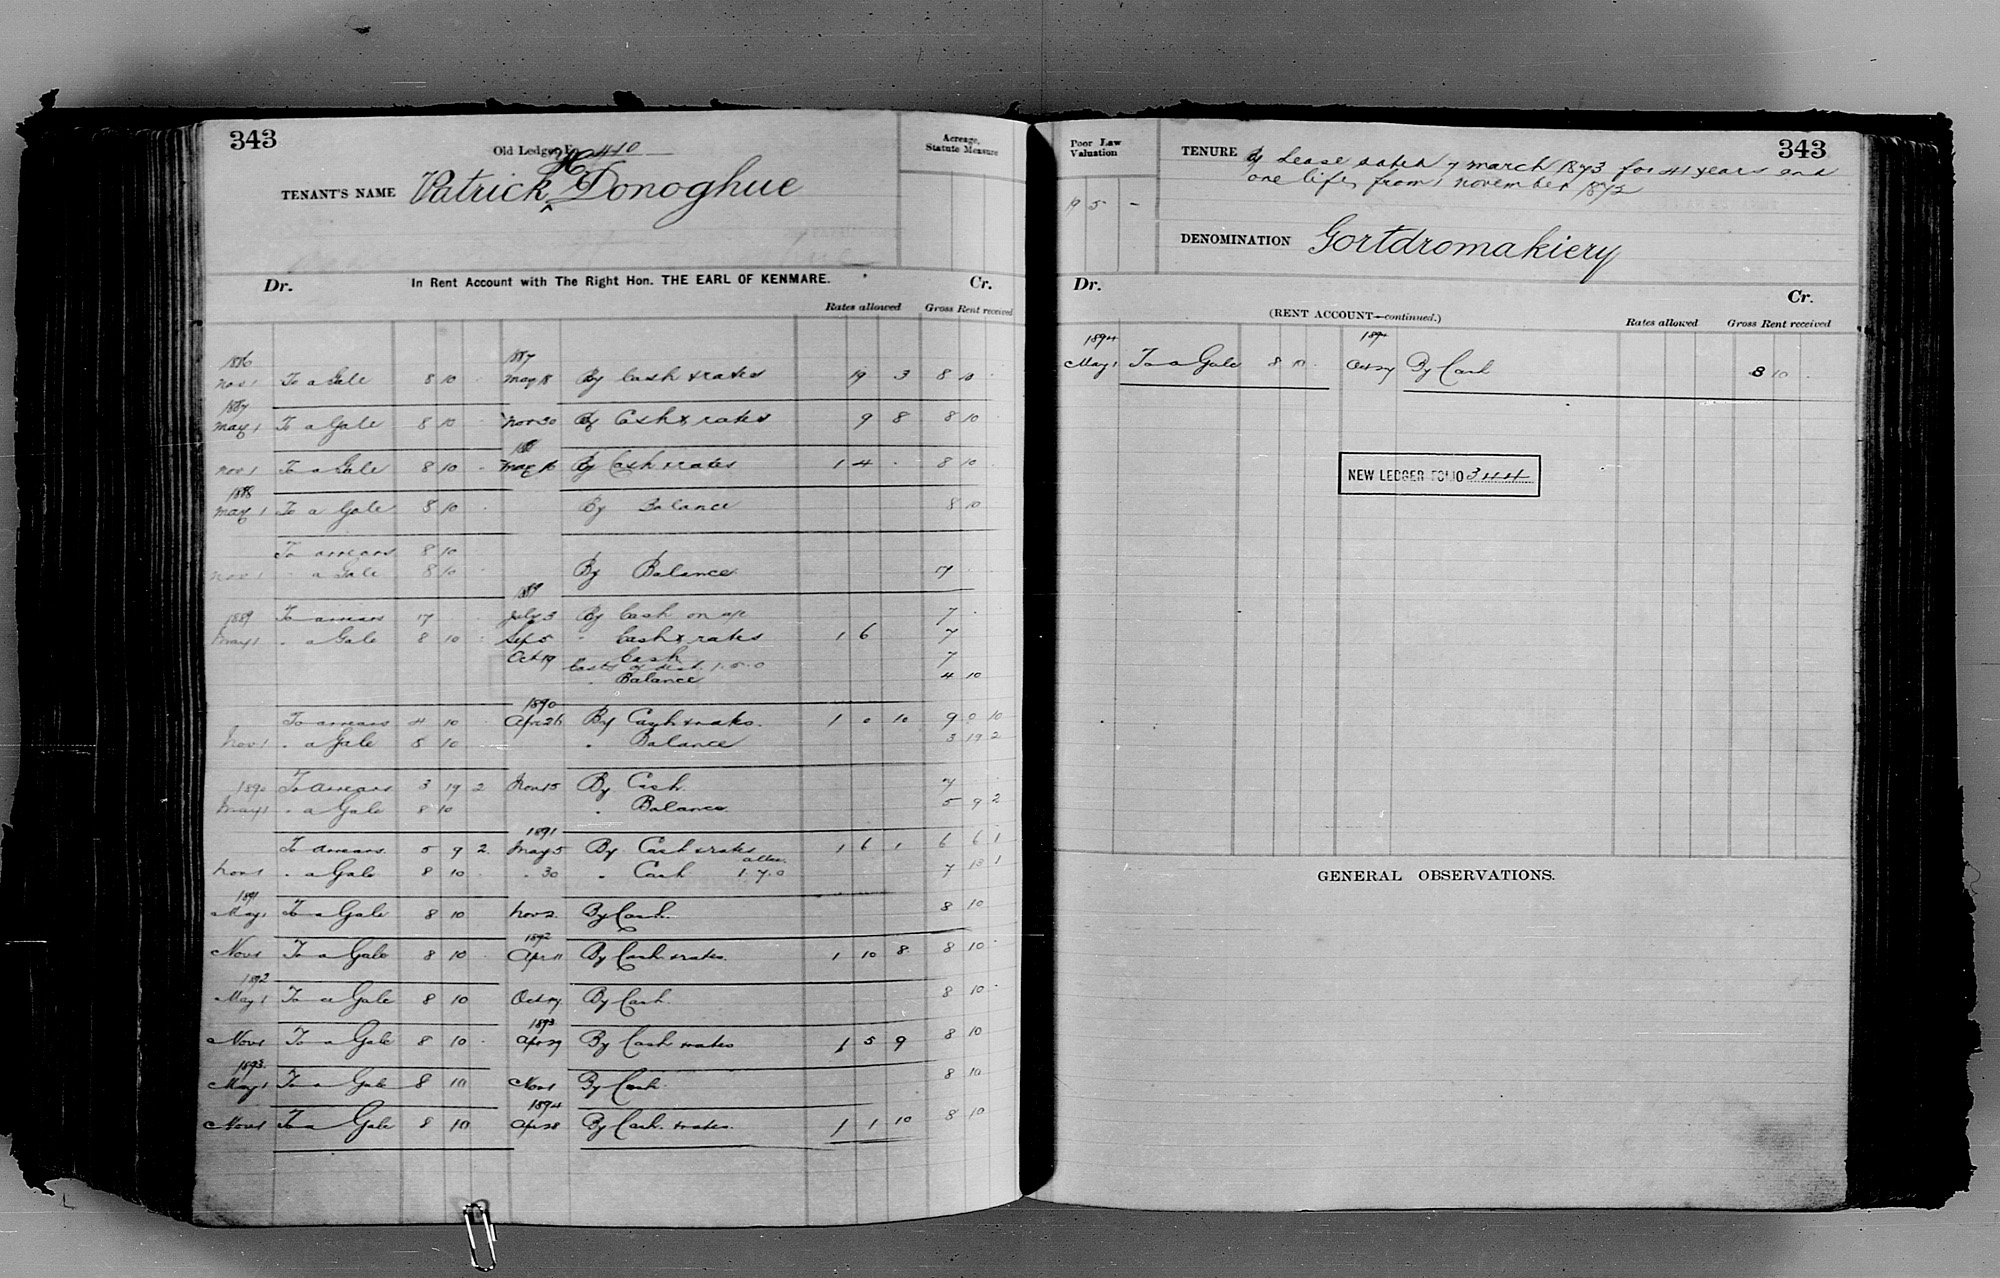 343
Old Ledger Fo. 410
Acreage, Statute Measure
TENANT'S NAME Patrick H Donoghue
Dr. In Rent Account with The Right Hon. THE EARL OF KENMARE. Cr.
Rates allowed Gross Rent received
1886 1887
Nov 1 To a Gale 8 10 - May 18 By Cash & rates 19 3 8 10 -
1887
May 1 To a Gale 8 10 - Nov 30 By Cash & rates 9 8 8 10
188
Nov 1 To a Gale 8 10 - May 16 By Cash & rates 1 4 - 8 10 -
1888
May 1 To a Gale 8 10 - By Balance 8 10
To arrears 8 10
Nov 1 " a Gale 8 10 - By Balance 17 -
1889
1889 To arrears 17 - - July 3 By Cash on a/c 7 -
May 1 " a Gale 8 10 - Sep 5 " Cash & rates 1 6 7
Oct 19 Cash 7
Costs of 1.5.0
" Balance 4 10
1890
To arrears 4 10 - Apr 26 By Cash & rates. 1 0 10 9 0 10
Nov 1 " a Gale 8 10 " Balance 3 19 2
1890 To arrears 3 19 2 Nov 15 By Cash. 7 -
May 1 " a Gale 8 10 " Balance 5 9 2
1891
To arrears. 5 9 2. May 5 By Cash & rates 1 6 1 6 6 1
Nov 1 " a Gale 8 10 - " 30 " Cash allce. 1.7.0 7 13 1
1891
May 1 To a Gale 8 10 Nov 2. By Cash. 8 10
1892
Nov 1 To a Gale 8 10 - Apr 11 By Cash & rates. 1 10 8 8 10 -
1892
May 1 To a Gale 8 10 Oct 17. By Cash. 8 10 -
1893
Nov 1 To a Gale 8 10 - Apr 29 By Cash & rates 1 5 9 8 10
1893.
May 1 To a Gale 8 10 Nov 1 By Cash. 8 10
1894
Nov 1 To a Gale 8 10 Apr 28 By Cash. & rates. 1 1 10 8 10
Poor Law Valuation
19 5 -
TENURE By Lease dated 7 March 1873 for 41 years and
one life, from 1 November 1872
343
DENOMINATION Gortdromakiery
Dr. Cr.
(RENT ACCOUNT—continued.)
Rates allowed Gross Rent received
1894 189
May 1 To a Gale 8 10 - Oct 27 By Cash 8 10 -
NEW LEDGER FOLIO 344
GENERAL OBSERVATIONS.